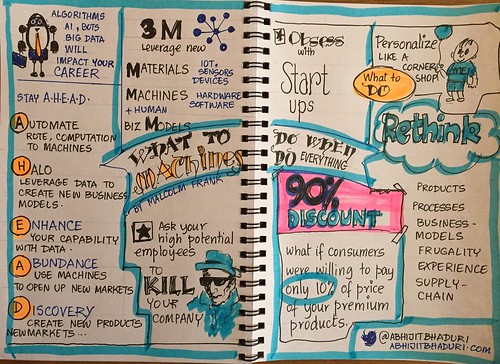 ALGORITHMS
AI, BOTS
BIG DATA
WILL
IMPACT YOUR
CAREER
STAY A·H·E·A·D·
AUTOMATE
ROTE, COMPUTATION
TO MACHINES
HALO
LEVERAGE DATA TO
CREATE NEW BUSINESS
MODELS.
ENHANCE
YOUR CAPABILITY
WITH DATA.
ABUNDANCE
USE MACHINES
TO OPEN UP NEW MARKETS
DISCOVERY
CREATE NEW PRODUCTS
NEW MARKETS...
3 M
Leverage new
MATERIALS IOT+
SENSORS
DEVICES
MACHINES HARDWARE
SOFTWARE
+ HUMAN
BIZ MODELS
WHAT TO
DO WHEN
MACHINES
DO EVERYTHING
BY MALCOLM FRANK
Ask your
high potential
employees
TO
KILL
YOUR
COMPANY
Obsess
with
Start
ups
90%
DISCOUNT
what if consumers
were willing to pay
only 10% of price
of your premium
products.
Personalize
LIKE A
CORNER
SHOP
What to
DO
ME!
Rethink
PRODUCTS
PROCESSES
BUSINESS-
MODELS
FRUGALITY
EXPERIENCE
SUPPLY-
CHAIN
@ABHIJITBHADURI
ABHIJITBHADURI.COM